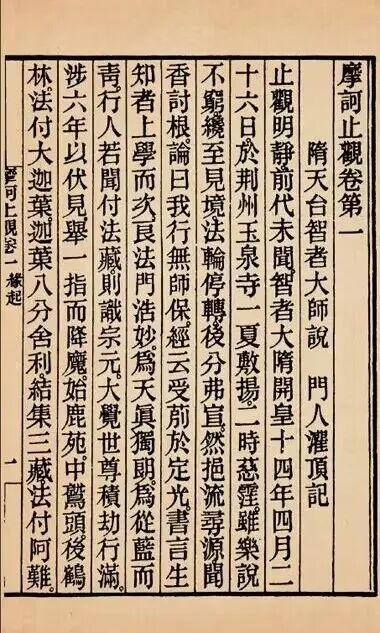 摩訶止觀卷第一
隋天台智者大師說 門人灌頂記
止觀明靜。前代未聞。智者大隋開皇十四年四月二
十六日。於荆州玉泉寺一夏敷揚。二時慈霔。雖樂說
不窮。纔至見境。法輪停轉。後分弗宣。然挹流尋源。聞
香討根。論曰。我行無師保。經云。受莂於定光。書言。生
知者上。學而次良。法門浩妙。爲天眞獨朗。爲從藍而
靑。行人若聞付法藏。則識宗元。大覺世尊積劫行滿。
涉六年以伏見。舉一指而降魔。始鹿苑。中鷲頭。後鶴
林。法付大迦葉。迦葉八分舍利。結集三藏。法付阿難。
摩訶止觀卷一 緣起 一